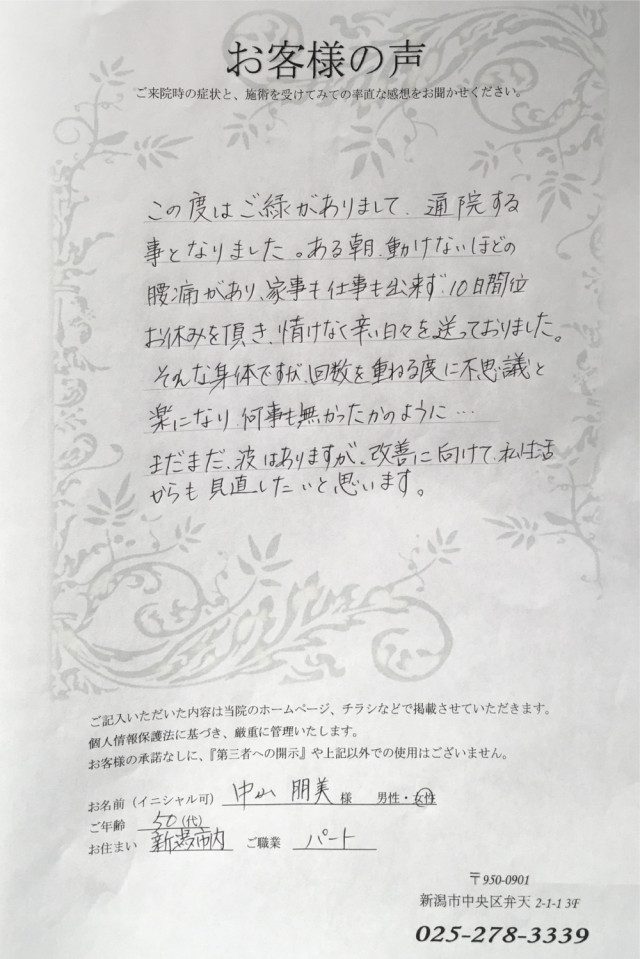 お客様の声
ご来院時の症状と、施術を受けてみての率直な感想をお聞かせください。
この度はご縁がありまして、通院する
事となりました。ある朝、動けないほどの
腰痛があり、家事も仕事も出来ず、10日間位
お休みを頂き、情けなく辛い日々を送っておりました。
そんな身体ですが、回数を重ねる度に不思議と
楽になり、何事も無かったかのように…
まだまだ、波はありますが、改善に向けて、私生活
からも見直したいと思います。
ご記入いただいた内容は当院のホームページ、チラシなどで掲載させていただきます。
個人情報保護法に基づき、厳重に管理いたします。
お客様の承諾なしに、『第三者への開示』や上記以外での使用はございません。
お名前（イニシャル可） 中山 朋美 様 男性・女性
ご年齢 50(代)
お住まい 新潟市内 ご職業 パート
〒950-0901
新潟市中央区弁天 2-1-1 3F
025-278-3339